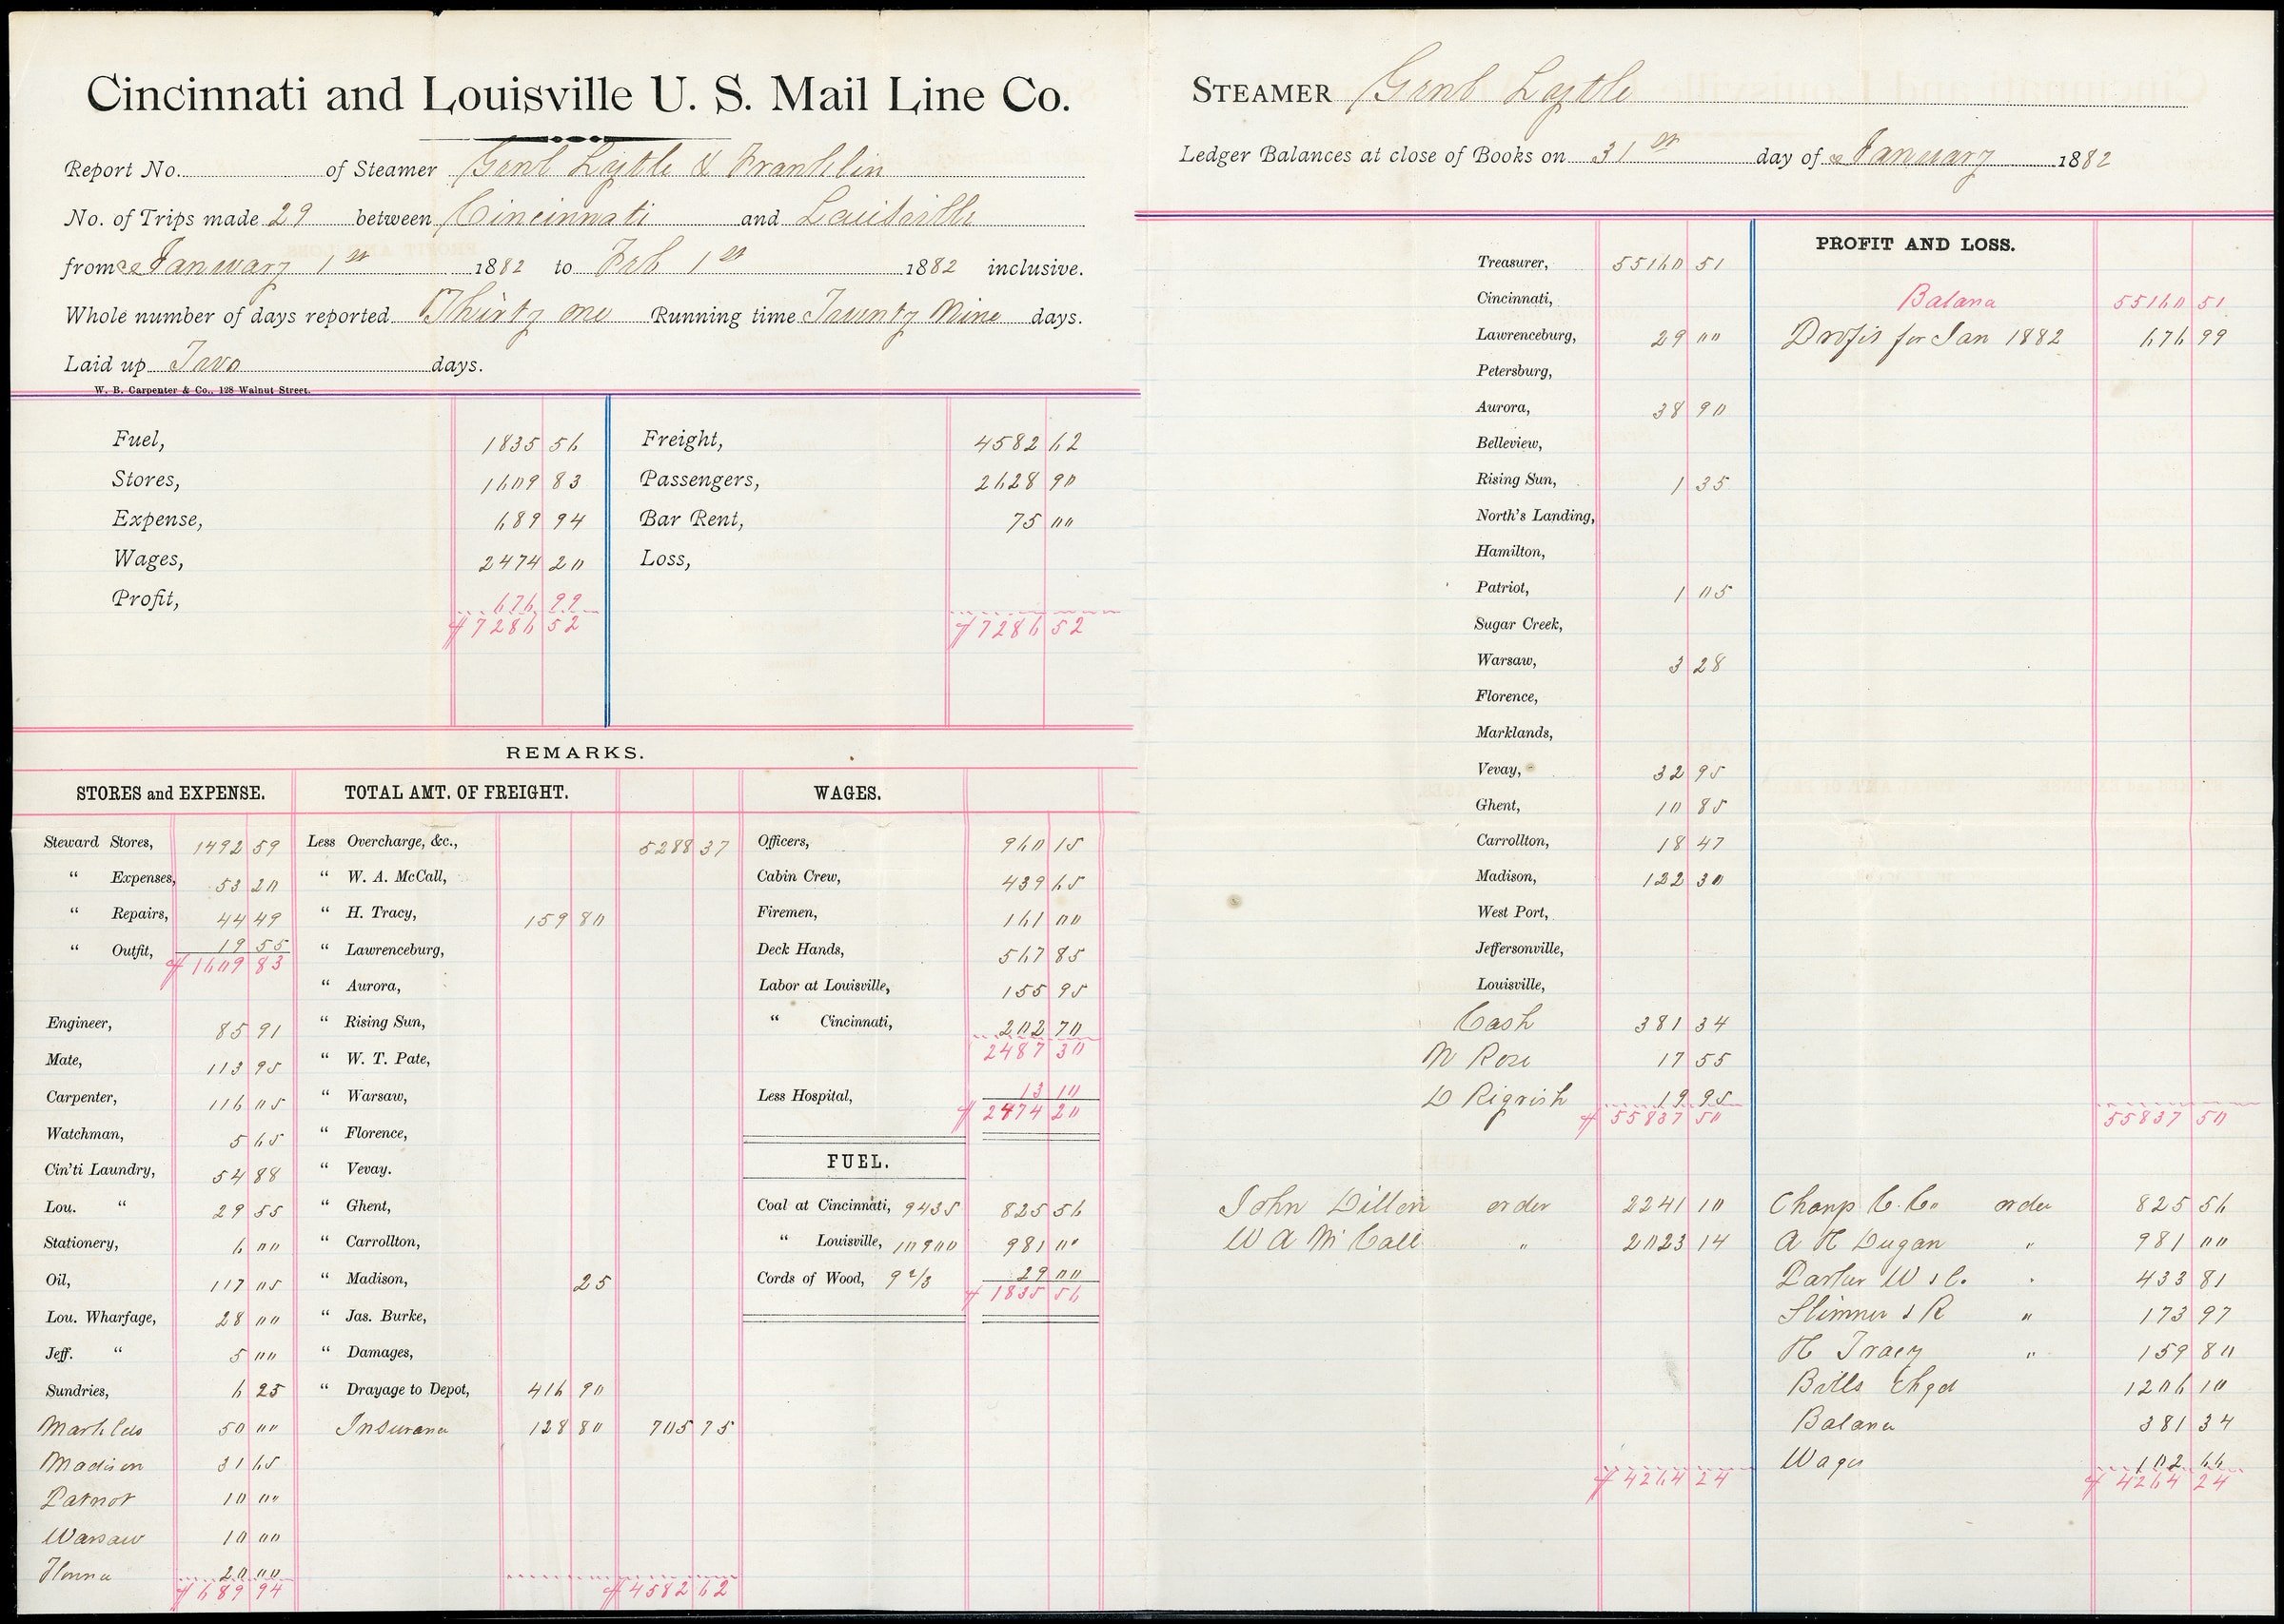 Cincinnati and Louisville U. S. Mail Line Co.
Report No. of Steamer Genl Lytle & Franklin
No. of Trips made 29 between Cincinnati and Louisville
from January 1st 1882 to Feb 1st 1882 inclusive.
Whole number of days reported Thirty one Running time Twenty Nine days.
Laid up Two days.
W. B. Carpenter & Co., 128 Walnut Street.
Fuel, 1835 56 Freight, 4582 62
Stores, 1609 83 Passengers, 2628 90
Expense, 689 94 Bar Rent, 75 00
Wages, 2474 20 Loss,
Profit, 676 99
$7286 52 $7286 52
REMARKS.
STORES and EXPENSE. TOTAL AMT. OF FREIGHT. WAGES.
Steward Stores, 1492 59 Less Overcharge, &c., 5288 37 Officers, 960 15
" Expenses, 53 20 " W. A. McCall, Cabin Crew, 439 65
" Repairs, 44 49 " H. Tracy, 159 80 Firemen, 161 00
" Outfit, 19 55 " Lawrenceburg, Deck Hands, 567 85
$1609 83
" Aurora, Labor at Louisville, 155 95
Engineer, 85 91 " Rising Sun, " Cincinnati, 202 70
2487 30
Mate, 113 95 " W. T. Pate,
Carpenter, 116 05 " Warsaw, Less Hospital, 13 10
$2474 20
Watchman, 5 65 " Florence,
Cin'ti Laundry, 54 88 " Vevay. FUEL.
Lou. " 29 55 " Ghent, Coal at Cincinnati, 9435 825 56
Stationery, 6 00 " Carrollton, " Louisville, 10900 981 00
Oil, 117 05 " Madison, 25 Cords of Wood, 9 2/3 29 00
$1835 56
Lou. Wharfage, 28 00 " Jas. Burke,
Jeff. " 5 00 " Damages,
Sundries, 6 25 " Drayage to Depot, 416 90
50 00 Insurance 128 80 705 75
Madison 31 65
Patriot 10 00
Warsaw 10 00
20 00
$689 94 $4582 62
STEAMER Genl Lytle
Ledger Balances at close of Books on 31st day of January 1882
PROFIT AND LOSS.
Treasurer, 55160 51
Cincinnati, Balance 55160 51
Lawrenceburg, 29 00 Profit for Jan 1882 676 99
Petersburg,
Aurora, 38 90
Belleview,
Rising Sun, 1 35
North's Landing,
Hamilton,
Patriot, 1 05
Sugar Creek,
Warsaw, 3 28
Florence,
Marklands,
Vevay, 32 95
Ghent, 10 85
Carrollton, 18 47
Madison, 122 30
West Port,
Jeffersonville,
Louisville,
Cash 381 34
M Rose 17 55
19 95
$55837 50 55837 50
John Dillon order 2241 10 order 825 56
W A McCall " 2023 14 A H Dugan " 981 00
433 81
" 173 97
H Tracy " 159 80
Bills Chgd 1206 10
Balance 381 34
Wages 102 66
$4264 24 $4264 24